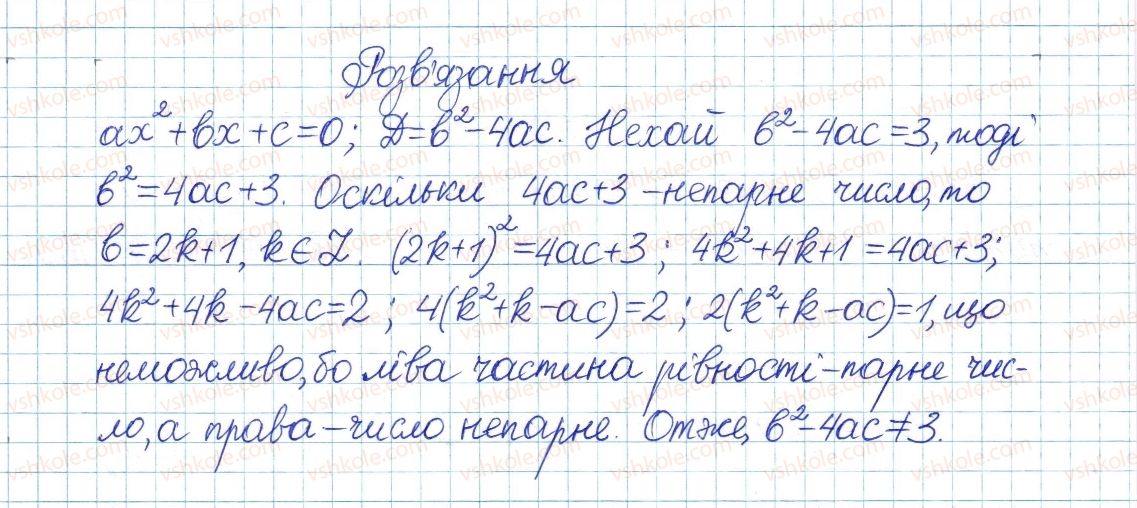 Розв'язання
ax²+bx+c=0; D=b²-4ac. Нехай b²-4ac=3, тоді
b²=4ac+3. Оскільки 4ac+3 -непарне число, то
b=2k+1, k∈Z. (2k+1)²=4ac+3; 4k²+4k+1=4ac+3;
4k²+4k-4ac=2; 4(k²+k-ac)=2; 2(k²+k-ac)=1, що
неможливо, бо ліва частина рівності-парне чис-
ло, а права-число непарне. Отже, b²-4ac≠3.